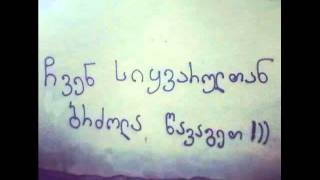 ჩვენ სიყვარულთან
ბრძოლა წავაგეთ )))